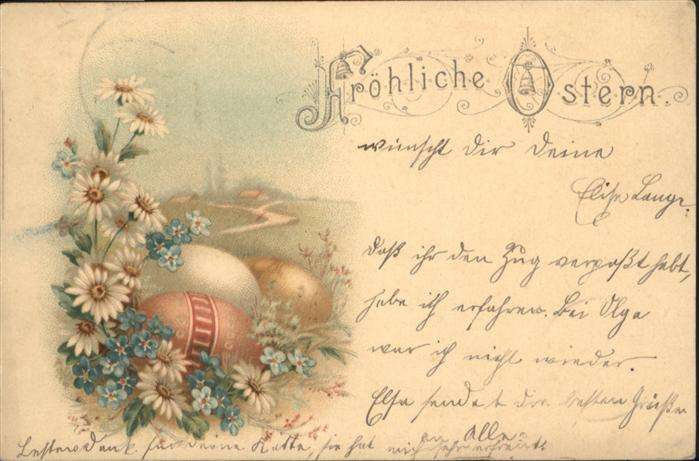 Fröhliche Ostern.
wünscht dir deine
Elise Lange.
Daß ihr den Zug verpaßt habt,
habe ich erfahren. Bei Olga
war ich nicht wieder.
Elsa sendet die besten Grüße
an Alle.
Besten Dank für deine Karte, sie hat mich sehr erfreut.